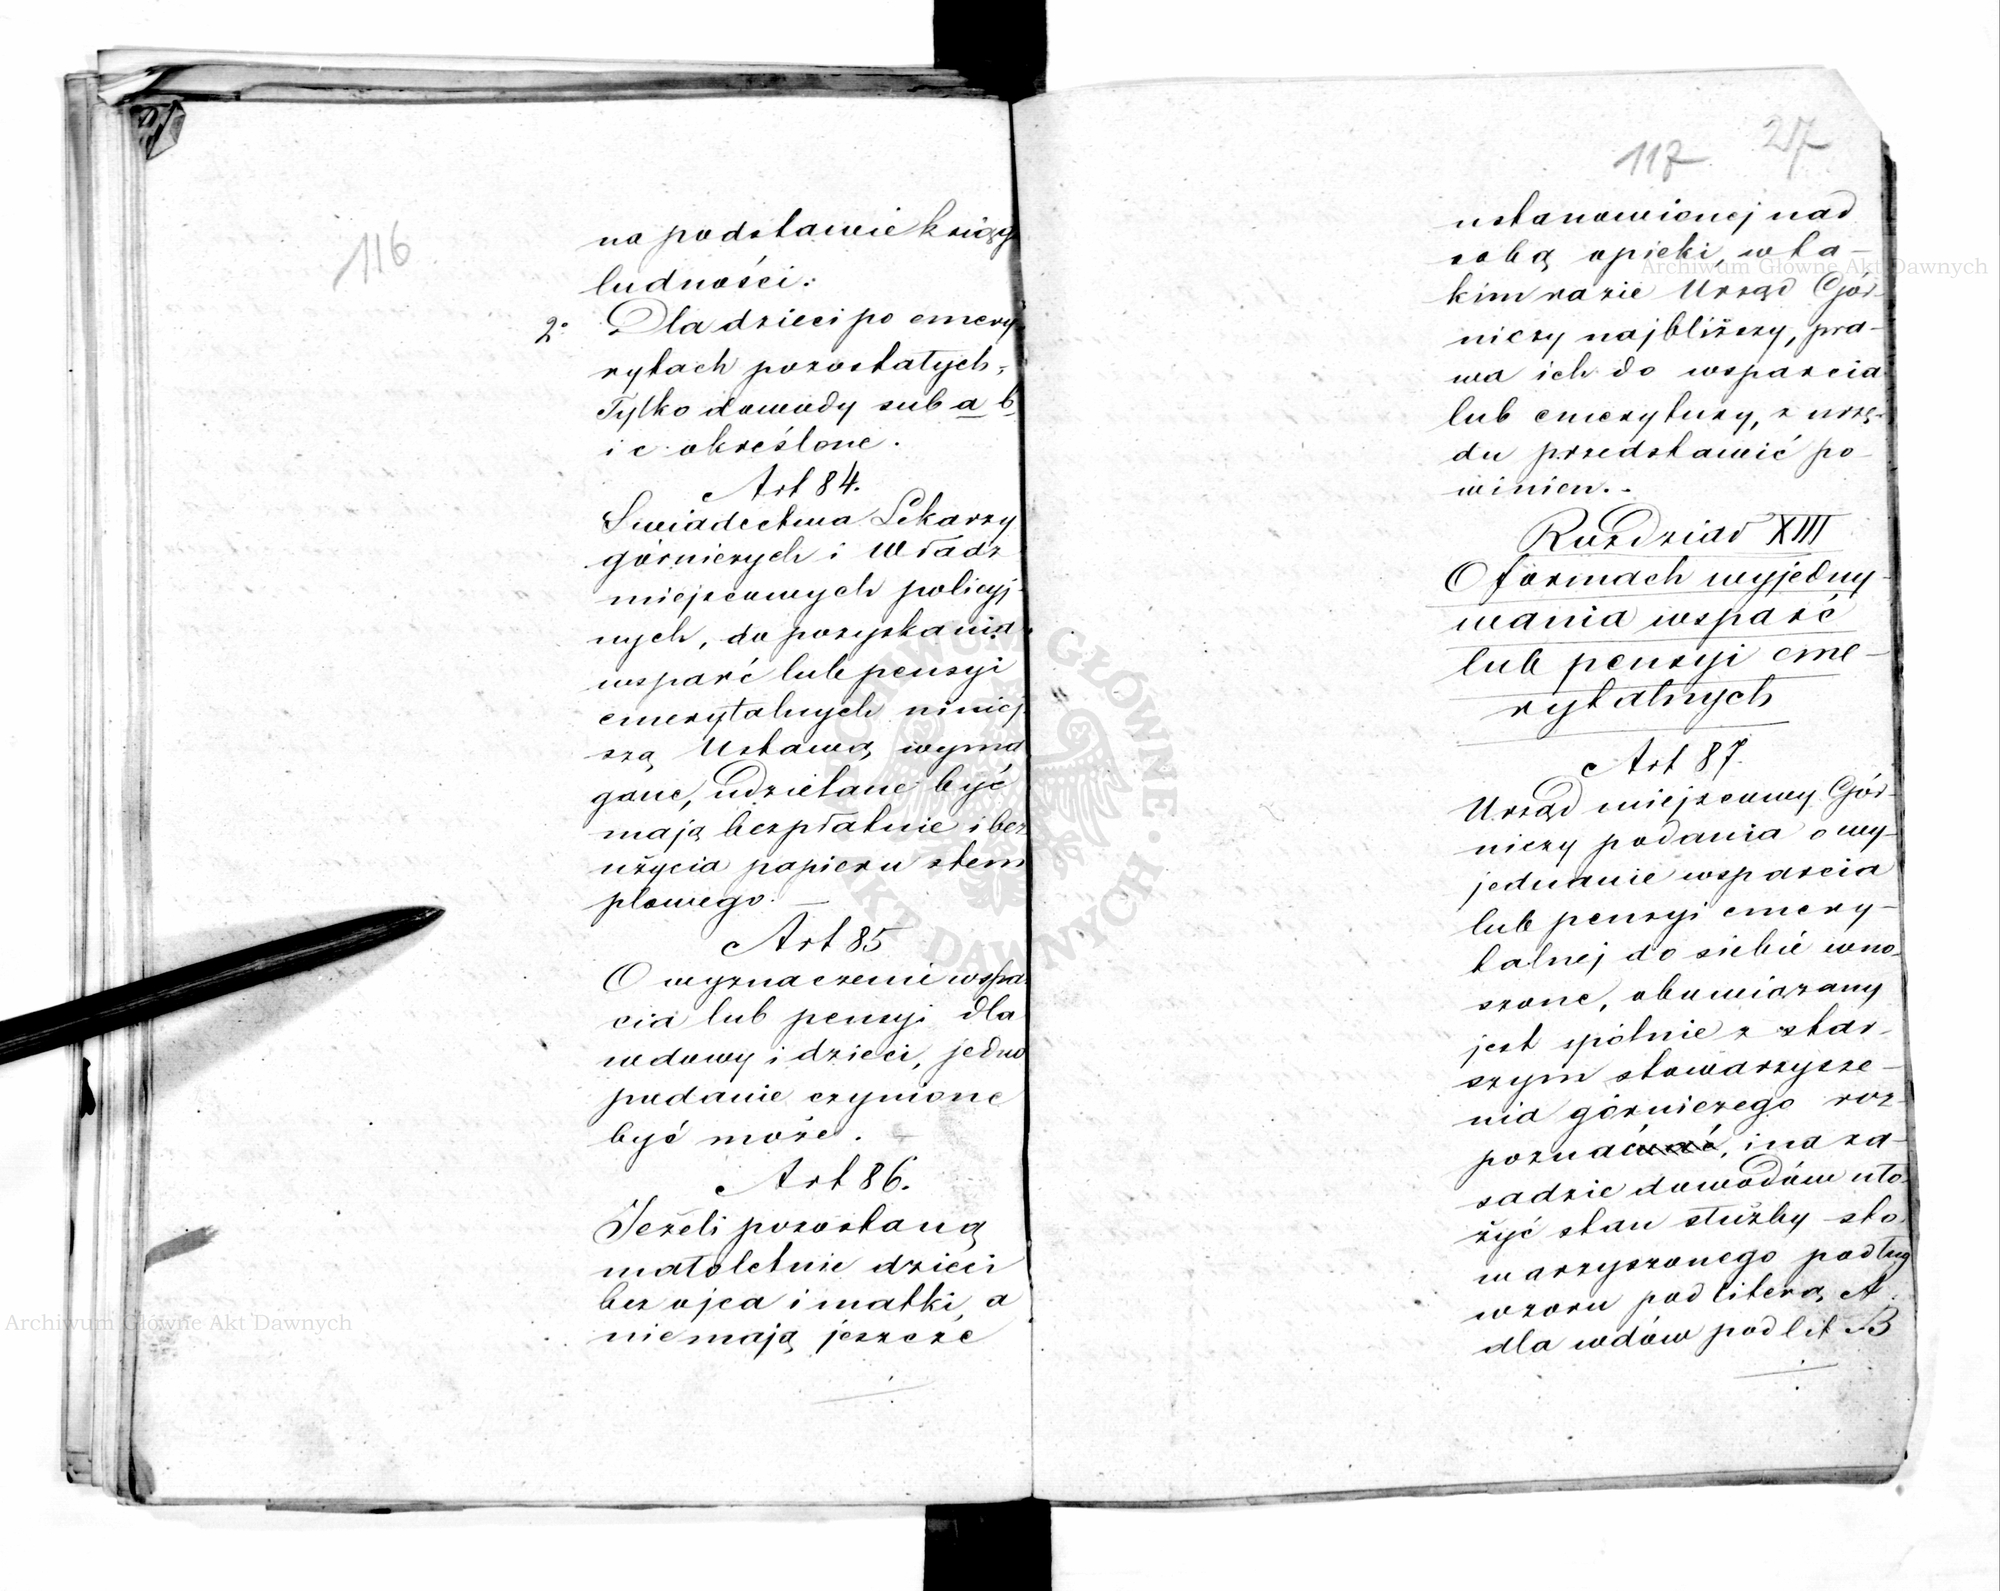 116
na podstawie księgi
ludności:
2o Dla dzieci po emery
rytach pozostałych,
Tylko dowody sub a b
i c określone.
Art 84.
Świadectwa Lekarzy
górniczych i Władz
miejscowych policyj-
nych, do pozyskania
wsparć lub pensyi
emerytalnych niniej
szą Ustawą wyma
gane, udzielane być
mają bezpłatnie i bez
użycia papieru stem
plowego. —
Art 85
O wyznaczenie wspar
cia lub pensyi dla
wdowy i dzieci, jedno
podanie czynione
być może.
Art 86.
Jeżeli pozostaną
małoletnie dzieci
bez ojca i matki, a
nie mają jeszcze
117 27
ustanowionej nad
sobą opieki, w ta-
kim razie Urząd Gór-
niczy najbliższy, pra-
wa ich do wsparcia
lub emerytury, z urzę-
du przedstawić po-
winien.-
Rozdział XIII
O formach wyjedny-
wania wsparć
lub pensyi eme-
rytalnych
Art 87.
Urząd miejscowy Gór-
niczy podania o wy-
jednanie wsparcia
lub pensyi emery-
talnej do siebie wno-
szone, obowiązany
jest spólnie z star-
szym stowarzysze-
nia górniczego roz-
poznać, i na za-
sadzie dowodów uło-
żyć stan służby sto-
warzyszonego podług
wzoru pod literą A.
dla wdów pod lit B
Archiwum Główne Akt Dawnych
Archiwum Główne Akt Dawnych
ARCHIWUM GŁÓWNE AKT DAWNYCH